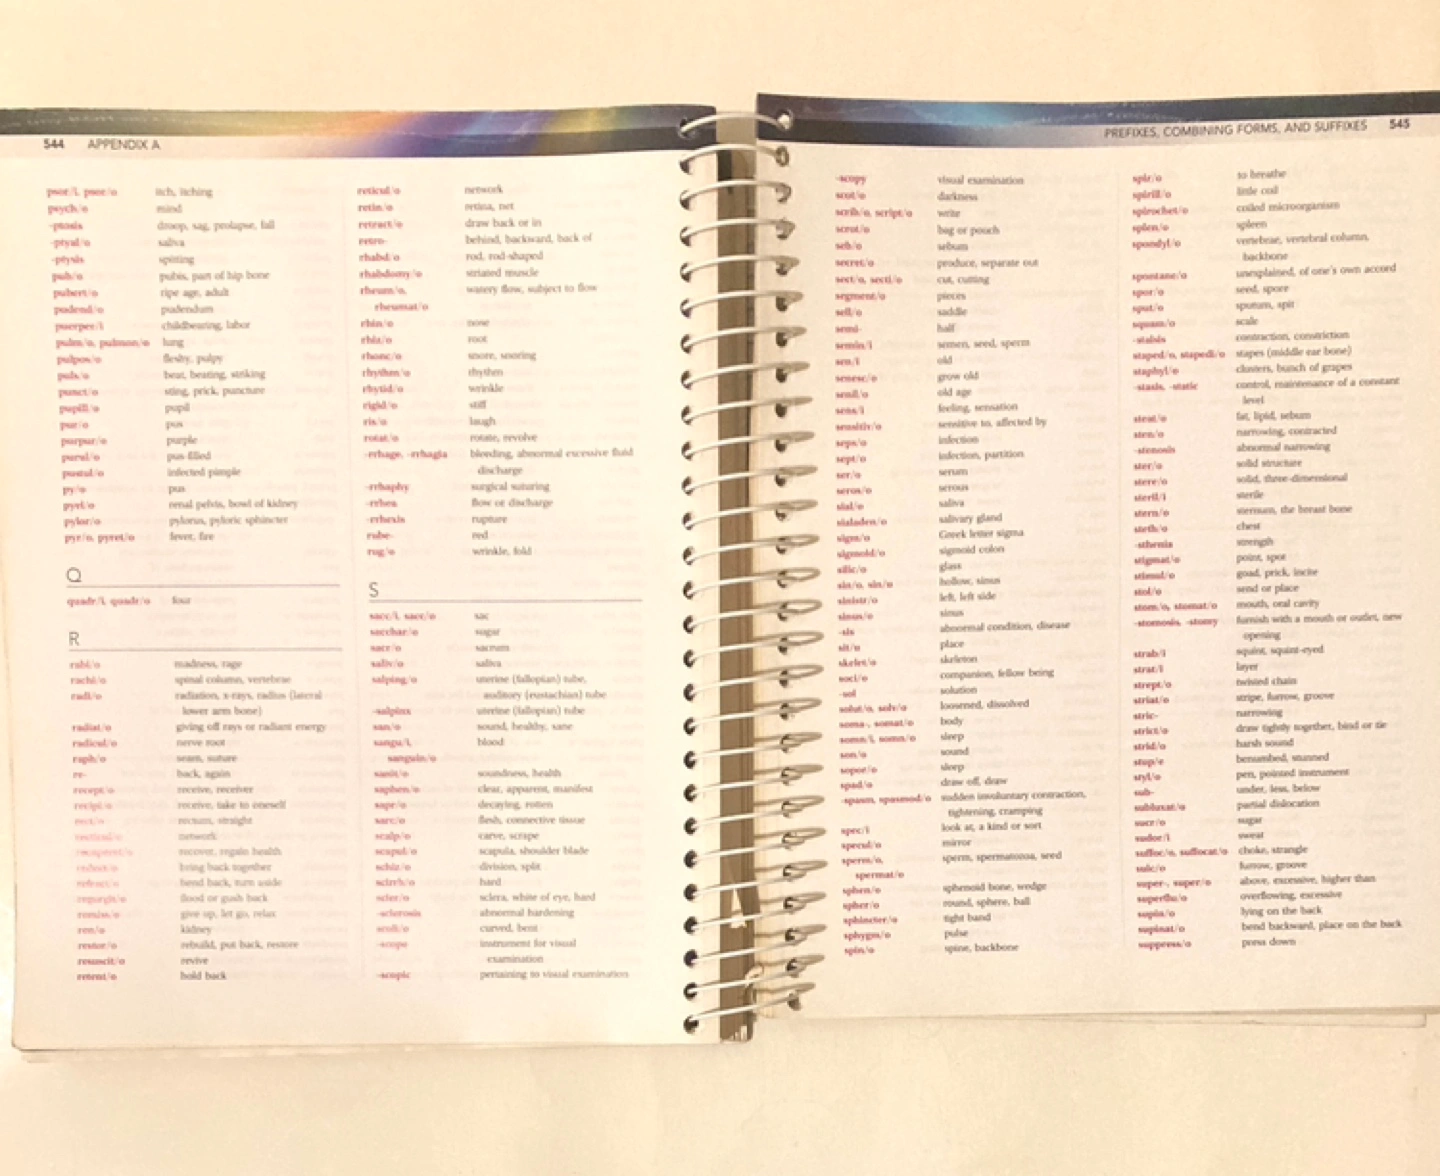 544 APPENDIX A
psor/i, psor/o itch, itching
psych/o mind
-ptosis droop, sag, prolapse, fall
-ptyal/o saliva
-ptysis spitting
pub/o pubis, part of hip bone
pubert/o ripe age, adult
pudend/o pudendum
puerper/i childbearing, labor
pulm/o, pulmon/o lung
pulpos/o fleshy, pulpy
puls/o beat, beating, striking
punct/o sting, prick, puncture
pupill/o pupil
pur/o pus
purpur/o purple
purul/o pus-filled
pustul/o infected pimple
py/o pus
pyel/o renal pelvis, bowl of kidney
pylor/o pylorus, pyloric sphincter
pyr/o, pyret/o fever, fire
Q
quadr/i, quadr/o four
R
rabi/o madness, rage
rachi/o spinal column, vertebrae
radi/o radiation, x-rays, radius (lateral
lower arm bone)
radiat/o giving off rays or radiant energy
radicul/o nerve root
raph/o seam, suture
re- back, again
recept/o receive, receiver
recipi/o receive, take to oneself
rect/o rectum, straight
reticul/o network
recuperat/o recover, regain health
reduct/o bring back together
refract/o bend back, turn aside
regurgit/o flood or gush back
remiss/o give up, let go, relax
ren/o kidney
restor/o rebuild, put back, restore
resuscit/o revive
retent/o hold back
reticul/o network
retin/o retina, net
retract/o draw back or in
retro- behind, backward, back of
rhabd/o rod, rod-shaped
rhabdomy/o striated muscle
rheum/o, watery flow, subject to flow
rheumat/o
rhin/o nose
rhiz/o root
rhonc/o snore, snoring
rhythm/o rhythm
rhytid/o wrinkle
rigid/o stiff
ris/o laugh
rotat/o rotate, revolve
-rrhage, -rrhagia bleeding, abnormal excessive fluid
discharge
-rrhaphy surgical suturing
-rrhea flow or discharge
-rrhexis rupture
rube- red
rug/o wrinkle, fold
S
sacc/i, sacc/o sac
sacchar/o sugar
sacr/o sacrum
saliv/o saliva
salping/o uterine (fallopian) tube,
auditory (eustachian) tube
-salpinx uterine (fallopian) tube
san/o sound, healthy, sane
sangu/i, blood
sanguin/o
sanit/o soundness, health
saphen/o clear, apparent, manifest
sapr/o decaying, rotten
sarc/o flesh, connective tissue
scalp/o carve, scrape
scapul/o scapula, shoulder blade
schiz/o division, split
scirrh/o hard
scler/o sclera, white of eye, hard
-sclerosis abnormal hardening
scoli/o curved, bent
-scope instrument for visual
examination
-scopic pertaining to visual examination
A
PREFIXES, COMBINING FORMS, AND SUFFIXES 545
-scopy visual examination
scot/o darkness
scrib/o, script/o write
scrot/o bag or pouch
seb/o sebum
secret/o produce, separate out
sect/o, secti/o cut, cutting
segment/o pieces
sell/o saddle
semi- half
semin/i semen, seed, sperm
sen/i old
senesc/o grow old
senil/o old age
sens/i feeling, sensation
sensitiv/o sensitive to, affected by
seps/o infection
sept/o infection, partition
ser/o serum
seros/o serous
sial/o saliva
sialaden/o salivary gland
sigm/o Greek letter sigma
sigmoid/o sigmoid colon
silic/o glass
sin/o, sin/u hollow, sinus
sinistr/o left, left side
sinus/o sinus
-sis abnormal condition, disease
sit/u place
skelet/o skeleton
soci/o companion, fellow being
-sol solution
solut/o, solv/o loosened, dissolved
soma-, somat/o body
somn/i, somn/o sleep
son/o sound
sopor/o sleep
spad/o draw off, draw
-spasm, spasmod/o sudden involuntary contraction,
tightening, cramping
spec/i look at, a kind or sort
specul/o mirror
sperm/o, sperm, spermatozoa, seed
spermat/o
sphen/o sphenoid bone, wedge
spher/o round, sphere, ball
sphincter/o tight band
sphygm/o pulse
spin/o spine, backbone
spir/o to breathe
spirill/o little coil
spirochet/o coiled microorganism
splen/o spleen
spondyl/o vertebrae, vertebral column,
backbone
spontane/o unexplained, of one's own accord
spor/o seed, spore
sput/o sputum, spit
squam/o scale
-stalsis contraction, constriction
staped/o, stapedi/o stapes (middle ear bone)
staphyl/o clusters, bunch of grapes
-stasis, -static control, maintenance of a constant
level
steat/o fat, lipid, sebum
sten/o narrowing, contracted
-stenosis abnormal narrowing
ster/o solid structure
stere/o solid, three-dimensional
steril/i sterile
stern/o sternum, the breast bone
steth/o chest
-sthenia strength
stigmat/o point, spot
stimul/o goad, prick, incite
stol/o send or place
stom/o, stomat/o mouth, oral cavity
-stomosis, -stomy furnish with a mouth or outlet, new
opening
strab/i squint, squint-eyed
strat/i layer
strept/o twisted chain
striat/o stripe, furrow, groove
stric- narrowing
strict/o draw tightly together, bind or tie
strid/o harsh sound
stup/e benumbed, stunned
styl/o pen, pointed instrument
sub- under, less, below
subluxat/o partial dislocation
sucr/o sugar
sudor/i sweat
suffoc/o, suffocat/o choke, strangle
sulc/o furrow, groove
super-, super/o above, excessive, higher than
superflu/o overflowing, excessive
supin/o lying on the back
supinat/o bend backward, place on the back
suppress/o press down